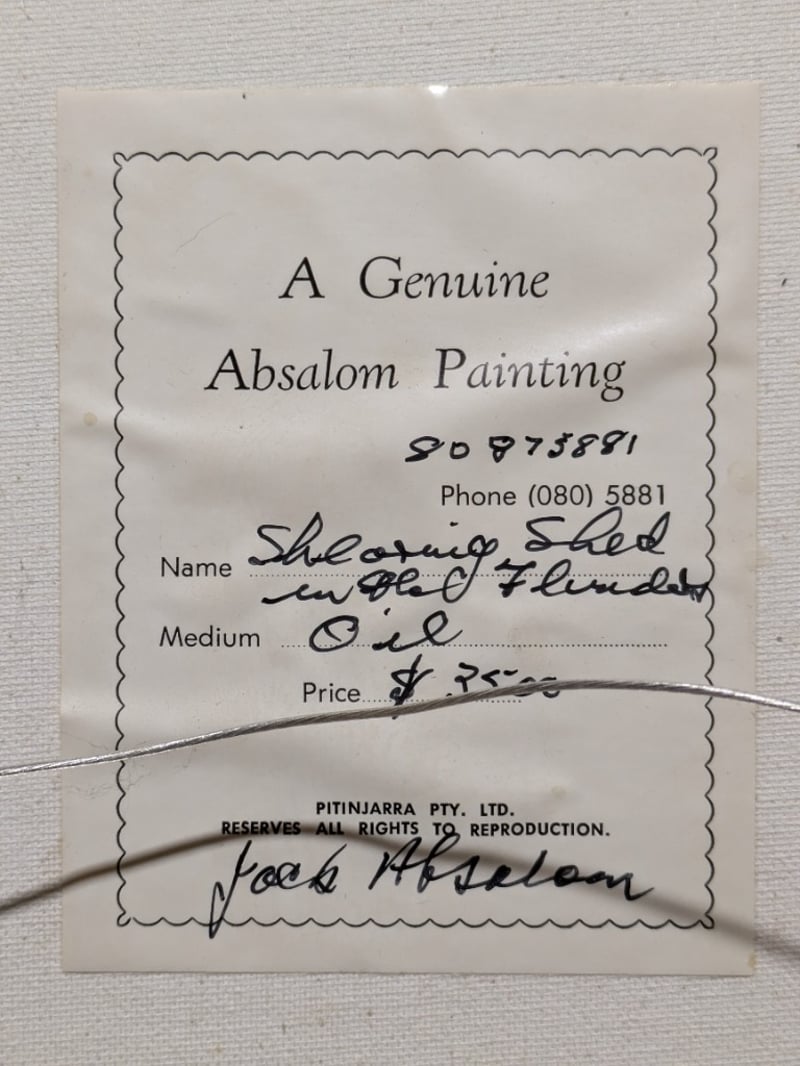 A Genuine
Absalom Painting
80 875881
Phone (080) 5881
Name Shearing Shed
in the Flinders
Medium Oil
Price $ 3500
PITINJARRA PTY. LTD.
RESERVES ALL RIGHTS TO REPRODUCTION.
Jack Absalom